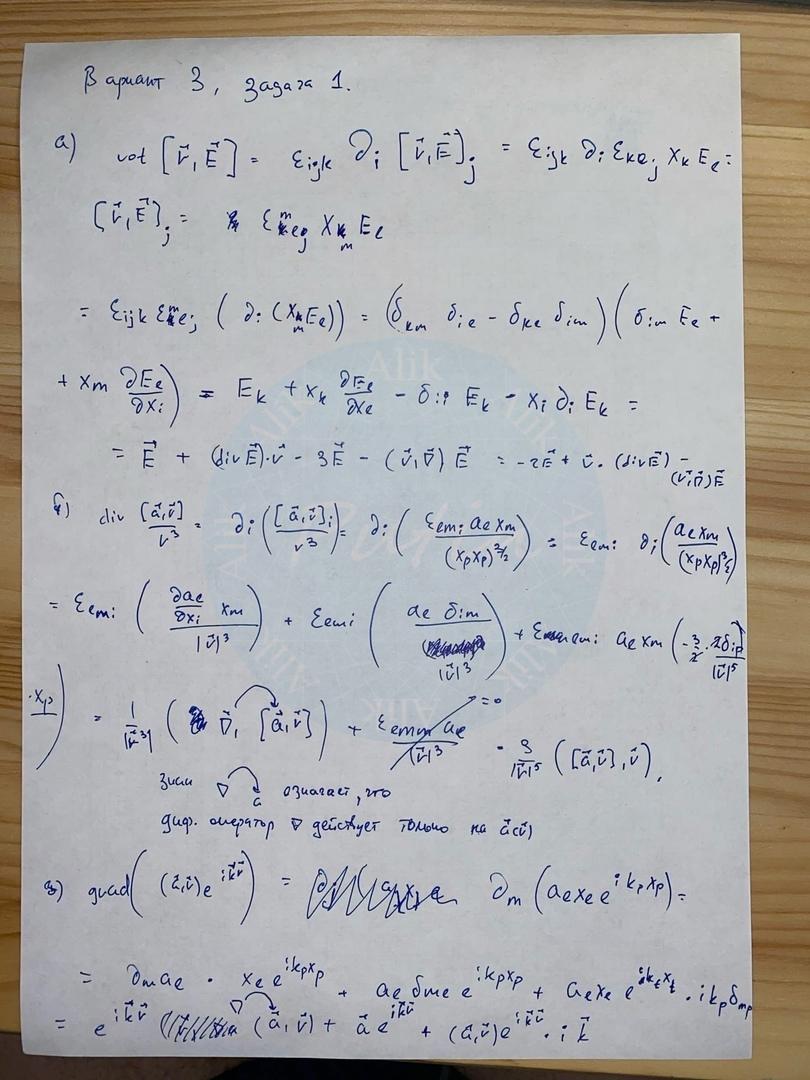 Вариант 3, задача 1.
а) rot [r⃗, E⃗] = ε_ijk ∂_i [r⃗, E⃗]_j = ε_ijk ∂_i ε_klj x_k E_l =
[r⃗, E⃗]_j = ε_mlj x_m E_l
= ε_ijk ε_mlj (∂_i (x_m E_l)) = (δ_km δ_il - δ_kl δ_im)(δ_im E_l +
+ x_m ∂E_l/∂x_i) = E_k + x_k ∂E_l/∂x_l - δ_ii E_k - x_i ∂_i E_k =
= E⃗ + (div E⃗)·r⃗ - 3E⃗ - (r⃗, ∇⃗) E⃗ = -2E⃗ + r⃗·(div E⃗) -
(r⃗, ∇⃗)E⃗
б) div [a⃗, r⃗]/r^3 = ∂_i ([a⃗, r⃗]_i/r^3) = ∂_i (ε_lmi a_l x_m/(x_p x_p)^3/2) = ε_lmi ∂_i (a_l x_m/(x_p x_p)^3/2)
= ε_lmi (∂a_l/∂x_i x_m/|r⃗|^3) + ε_lmi (a_l δ_im/|r⃗|^3) + ε_lmi a_l x_m (-3/2 · 2δ_ip/|r⃗|^5
·x_p) = 1/|r⃗^3| (∇⃗, [a⃗, r⃗]) + ε_lmm a_l/|r⃗|^3 =0 - 3/|r⃗|^5 ([a⃗, r⃗], r⃗),
знак ∇ a означает, что
диф. оператор ∇ действует только на a⃗(r⃗)
в) grad ((a⃗, r⃗)e^{ik⃗r⃗}) = ∂_m (a_l x_l e^{i k_p x_p}) =
= ∂_m a_l · x_l e^{ik_p x_p} + a_l δ_ml e^{ik_p x_p} + a_l x_l e^{ik_t x_t} · i k_p δ_mp
= e^{ik⃗r⃗} ∇ (a⃗, r⃗) + a⃗ e^{ik⃗r⃗} + (a⃗, r⃗)e^{ik⃗r⃗} · i k⃗